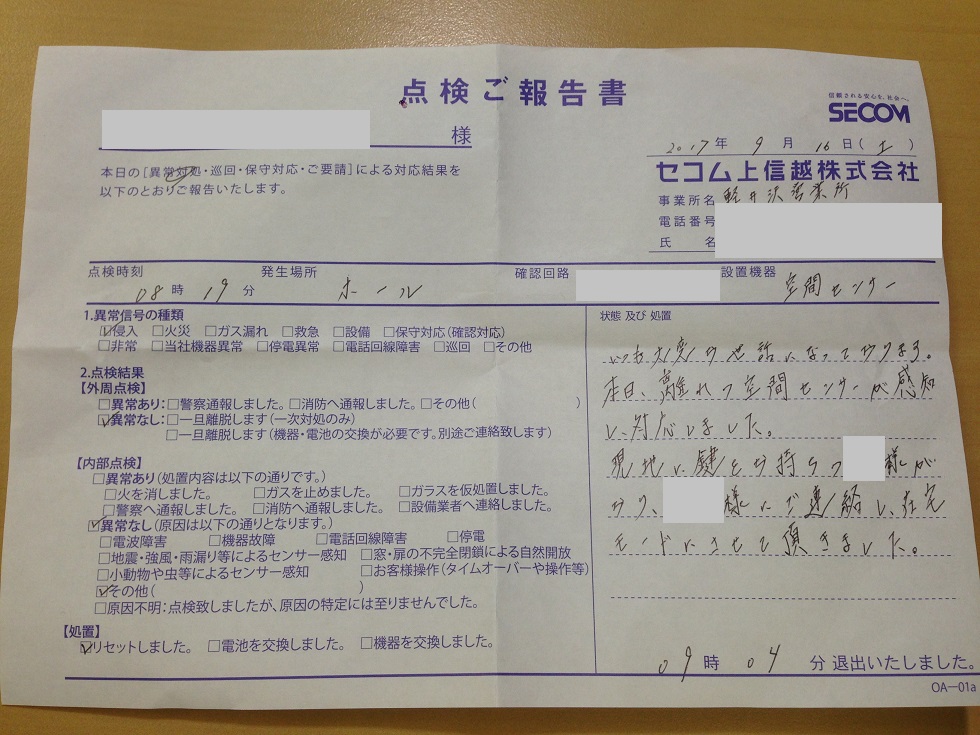 点検ご報告書
信頼される安心を、社会へ。
SECOM
様
2017年 9月 16日(土)
本日の[異常対処・巡回・保守対応・ご要請]による対応結果を
以下のとおりご報告いたします。
セコム上信越株式会社
事業所名 軽井沢営業所
電話番号
氏 名
点検時刻 発生場所 確認回路 設置機器
08時 19分 ホール 空間センサー
1.異常信号の種類
☑侵入 □火災 □ガス漏れ □救急 □設備 □保守対応(確認対応)
□非常 □当社機器異常 □停電異常 □電話回線障害 □巡回 □その他
2.点検結果
【外周点検】
□異常あり:□警察通報しました。□消防へ通報しました。□その他( )
☑異常なし:□一旦離脱します(一次対処のみ)
□一旦離脱します(機器・電池の交換が必要です。別途ご連絡致します)
【内部点検】
□異常あり(処置内容は以下の通りです。)
□火を消しました。 □ガスを止めました。 □ガラスを仮処置しました。
□警察へ通報しました。 □消防へ通報しました。 □設備業者へ連絡しました。
☑異常なし(原因は以下の通りとなります。)
□電波障害 □機器故障 □電話回線障害 □停電
□地震・強風・雨漏り等によるセンサー感知 □窓・扉の不完全閉鎖による自然開放
□小動物や虫等によるセンサー感知 □お客様操作(タイムオーバーや操作等)
☑その他( )
□原因不明:点検致しましたが、原因の特定には至りませんでした。
【処置】
☑リセットしました。 □電池を交換しました。 □機器を交換しました。
状態 及び 処置
いつも大変お世話になっております。
本日、離れの空間センサーが感知
し、対応しました。
現地に鍵をお持ちの 様が
おり、 様にご連絡し、在宅
モードにさせて頂きました。
09時 04分 退出いたしました。
OA—01a